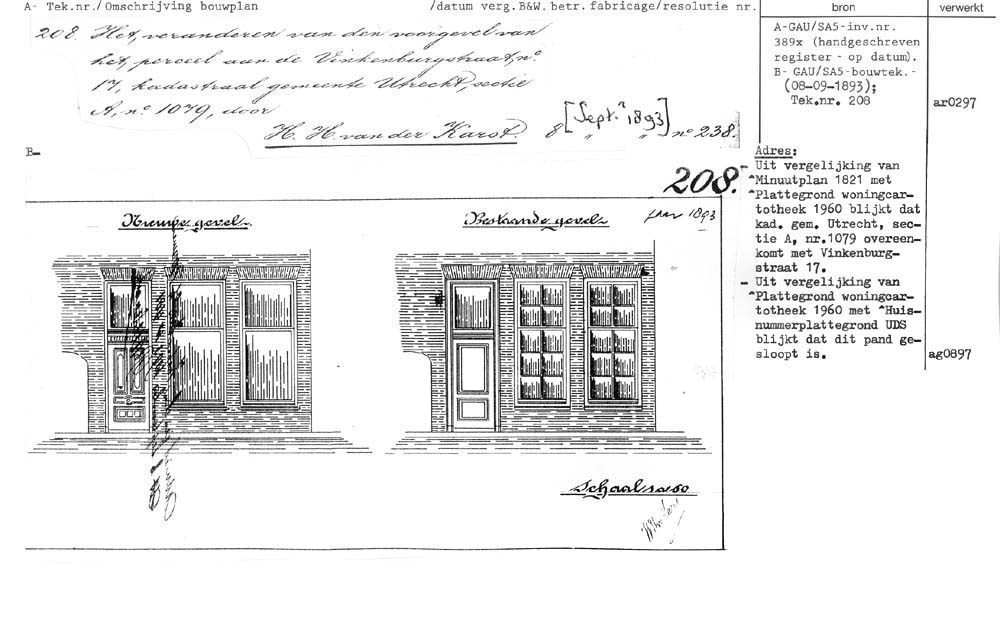 A- Tek.nr./Omschrijving bouwplan /datum verg.B&W.betr.fabricage/resolutie nr. bron verwerkt
208. Het veranderen van den voorgevel van
het perceel aan de Vinkenburgstraat, nº.
17, kadastraal gemeente Utrecht, sectie
A, nº 1079, door
H. H. van der Karst. 8 [Sept. 1893] nº 238.
A-GAU/SA5-inv.nr.
389x (handgeschreven
register - op datum).
B- GAU/SA5-bouwtek.-
(08-09-1893);
Tek.nr. 208
ar0297
B-
208.
Nieuwe gevel. Bestaande gevel. jaar 1893
Schaal 1 à 50
Adres:
- Uit vergelijking van
^Minuutplan 1821 met
^Plattegrond woningcar-
totheek 1960 blijkt dat
kad. gem. Utrecht, sec-
tie A, nr.1079 overeen-
komt met Vinkenburg-
straat 17.
- Uit vergelijking van
^Plattegrond woningcar-
totheek 1960 met ^Huis-
nummerplattegrond UDS
blijkt dat dit pand ge-
sloopt is.
ag0897